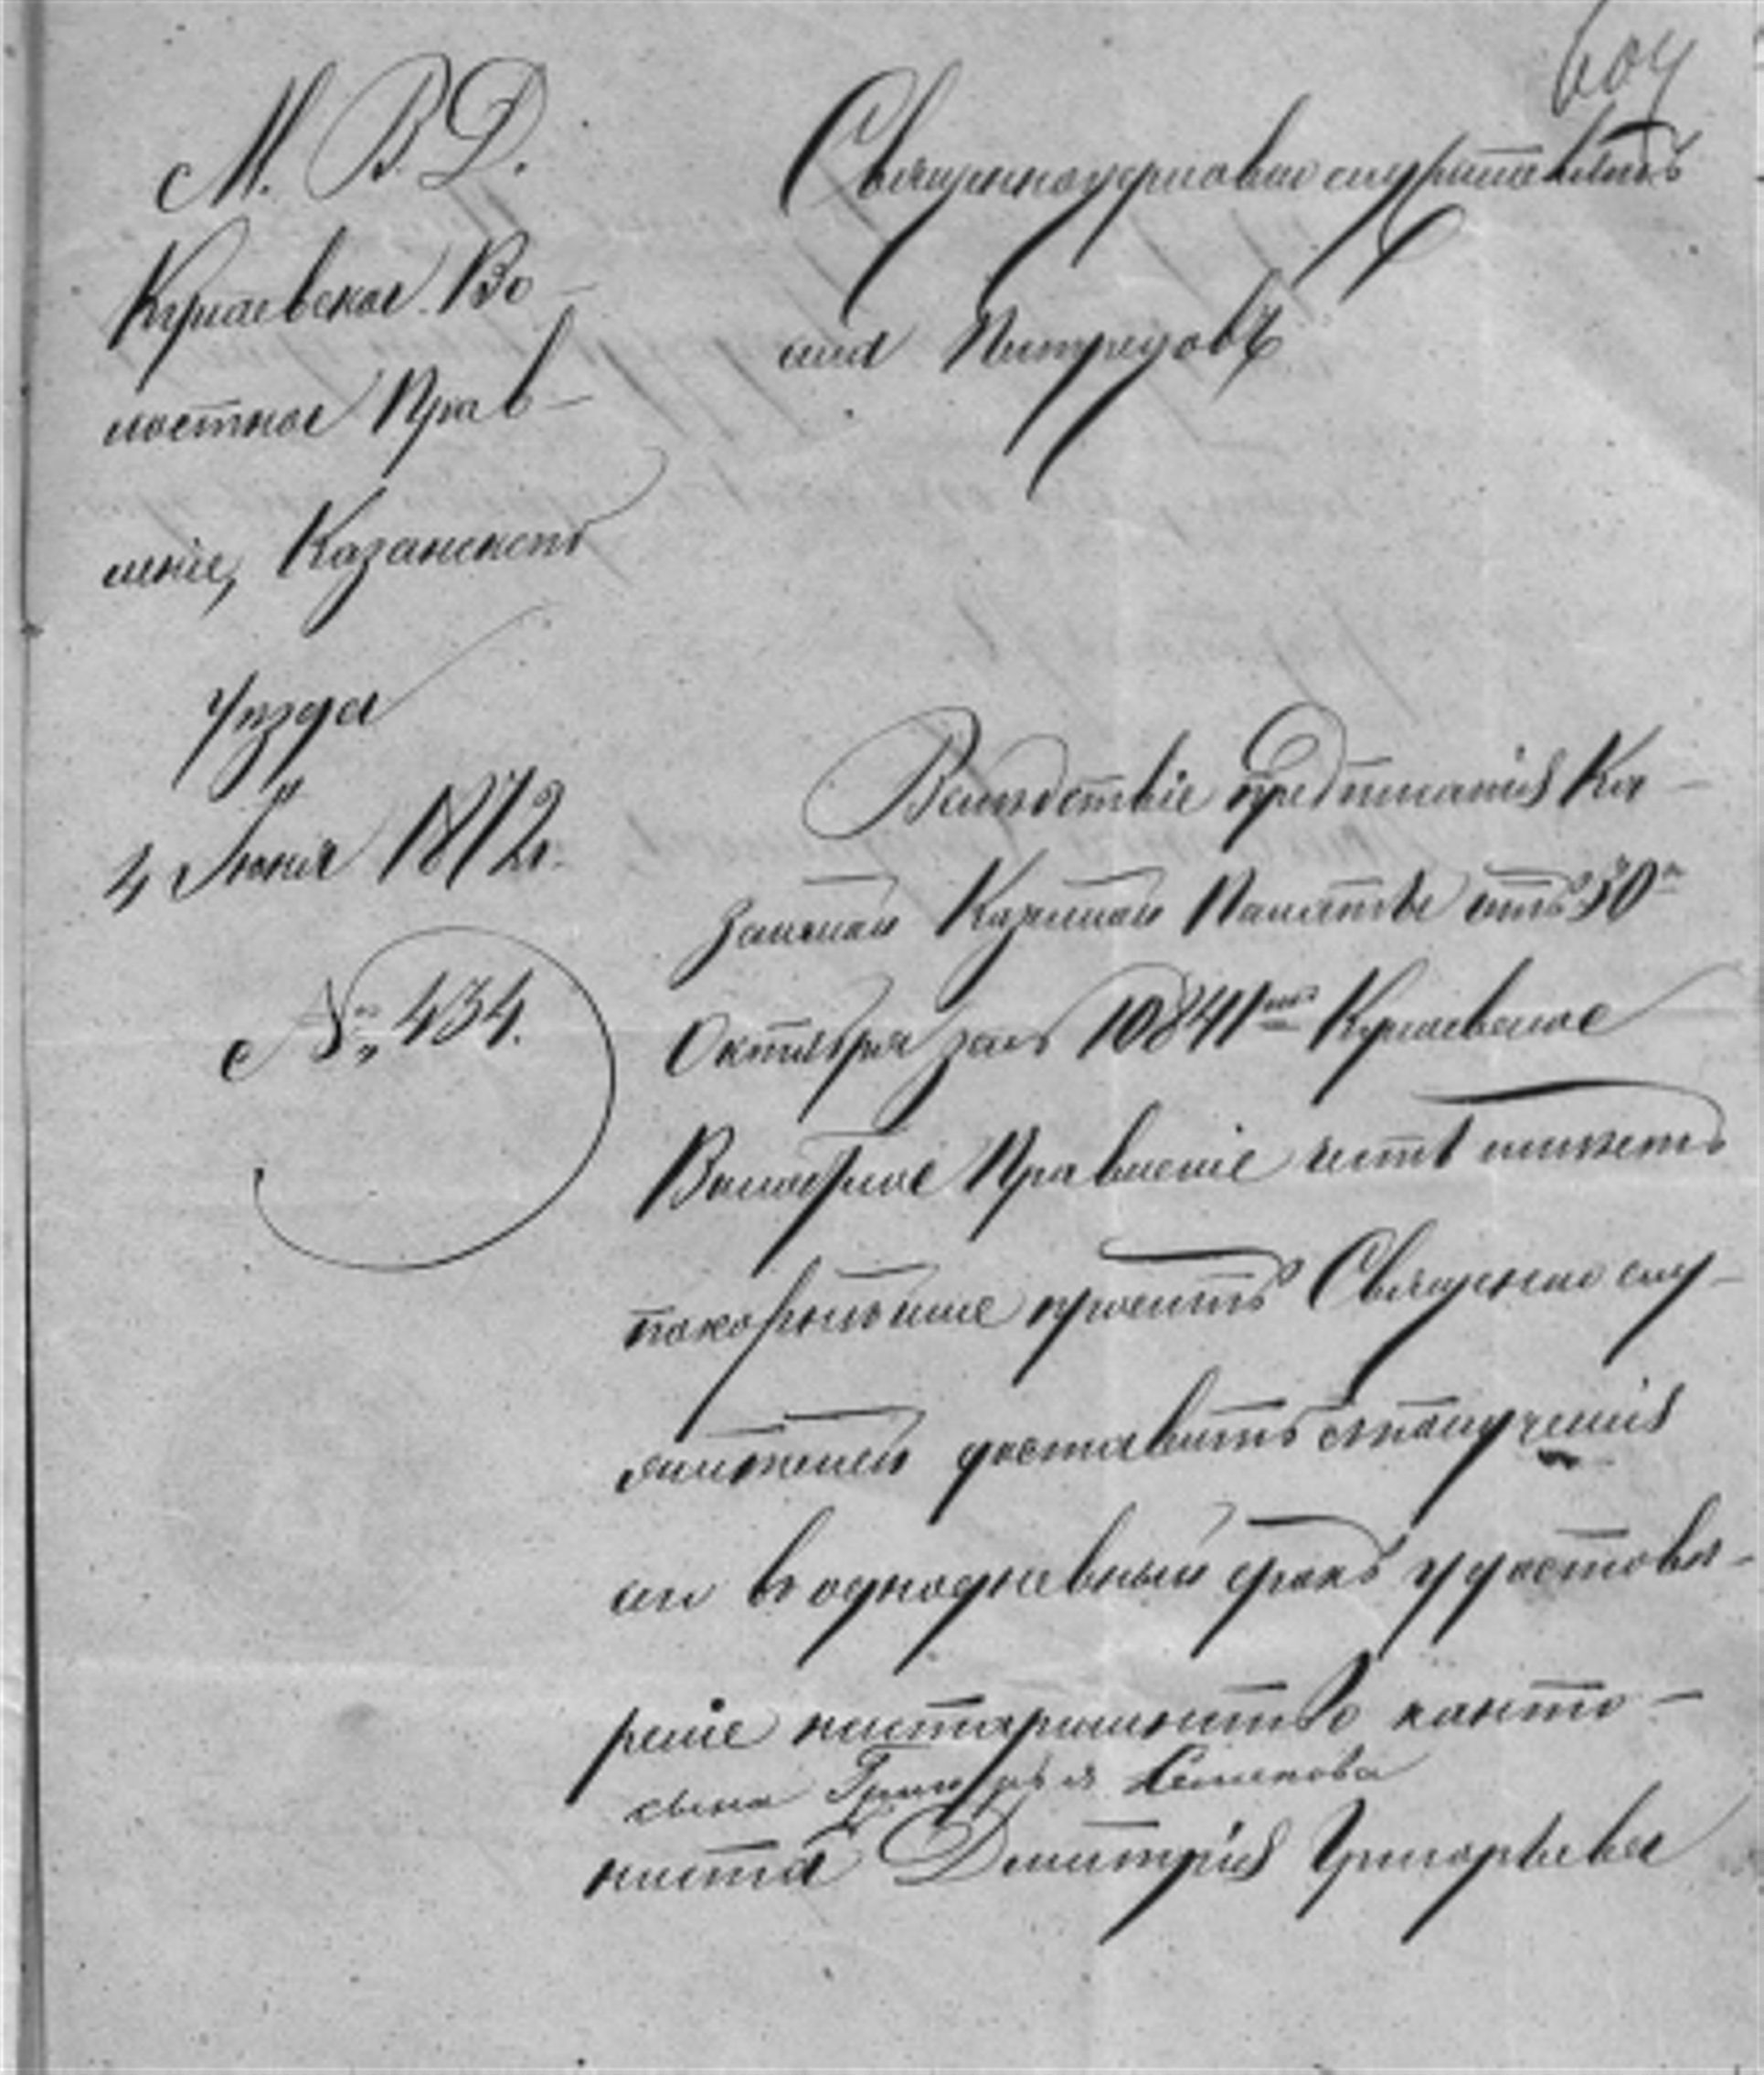 604
М. В. Д.
Кулаевское Во-
лостное Прав-
ленiе, Казанскаго
Уѣзда
4 Iюня 1872 г.
№ 434.
Священноцерковно служителямъ
села
Вслѣдствiе предписанiя Ка-
занской Казенной Палаты отъ 30го
Октября за № 10841мъ Кулаевское
Волостное Правленiе честь имѣетъ
покорнѣйше просить Священно слу-
жителей доставить съ полученiя
сего въ однодневный срокъ удостове-
ренiе канто-
сына Григорья Семенова
ниста Дмитрiя Григорьева